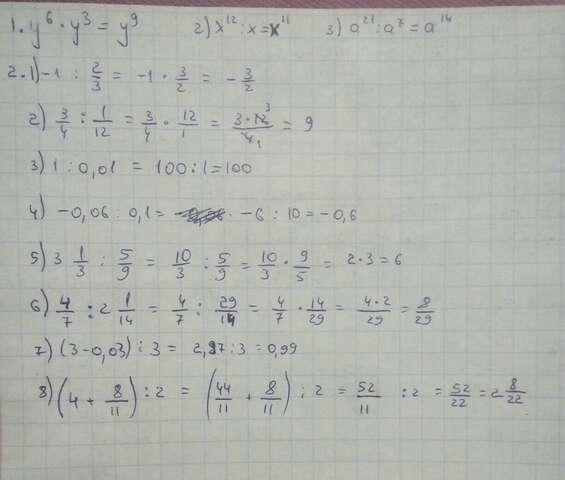 1. y⁶ · y³ = y⁹ 2) x¹² : x = x¹¹ 3) a²¹ : a⁷ = a¹⁴
2. 1) -1 : 2/3 = -1 · 3/2 = - 3/2
2) 3/4 : 1/12 = 3/4 · 12/1 = 3·12³/4₁ = 9
3) 1 : 0,01 = 100 : 1 = 100
4) -0,06 : 0,1 = -6 : 10 = -0,6
5) 3 1/3 : 5/9 = 10/3 : 5/9 = 10/3 · 9/5 = 2·3 = 6
6) 4/7 : 2 1/14 = 4/7 : 29/14 = 4/7 · 14/29 = 4·2/29 = 8/29
7) (3-0,03) : 3 = 2,97 : 3 = 0,99
8) (4 + 8/11) : 2 = (44/11 + 8/11) : 2 = 52/11 : 2 = 52/22 = 2 8/22